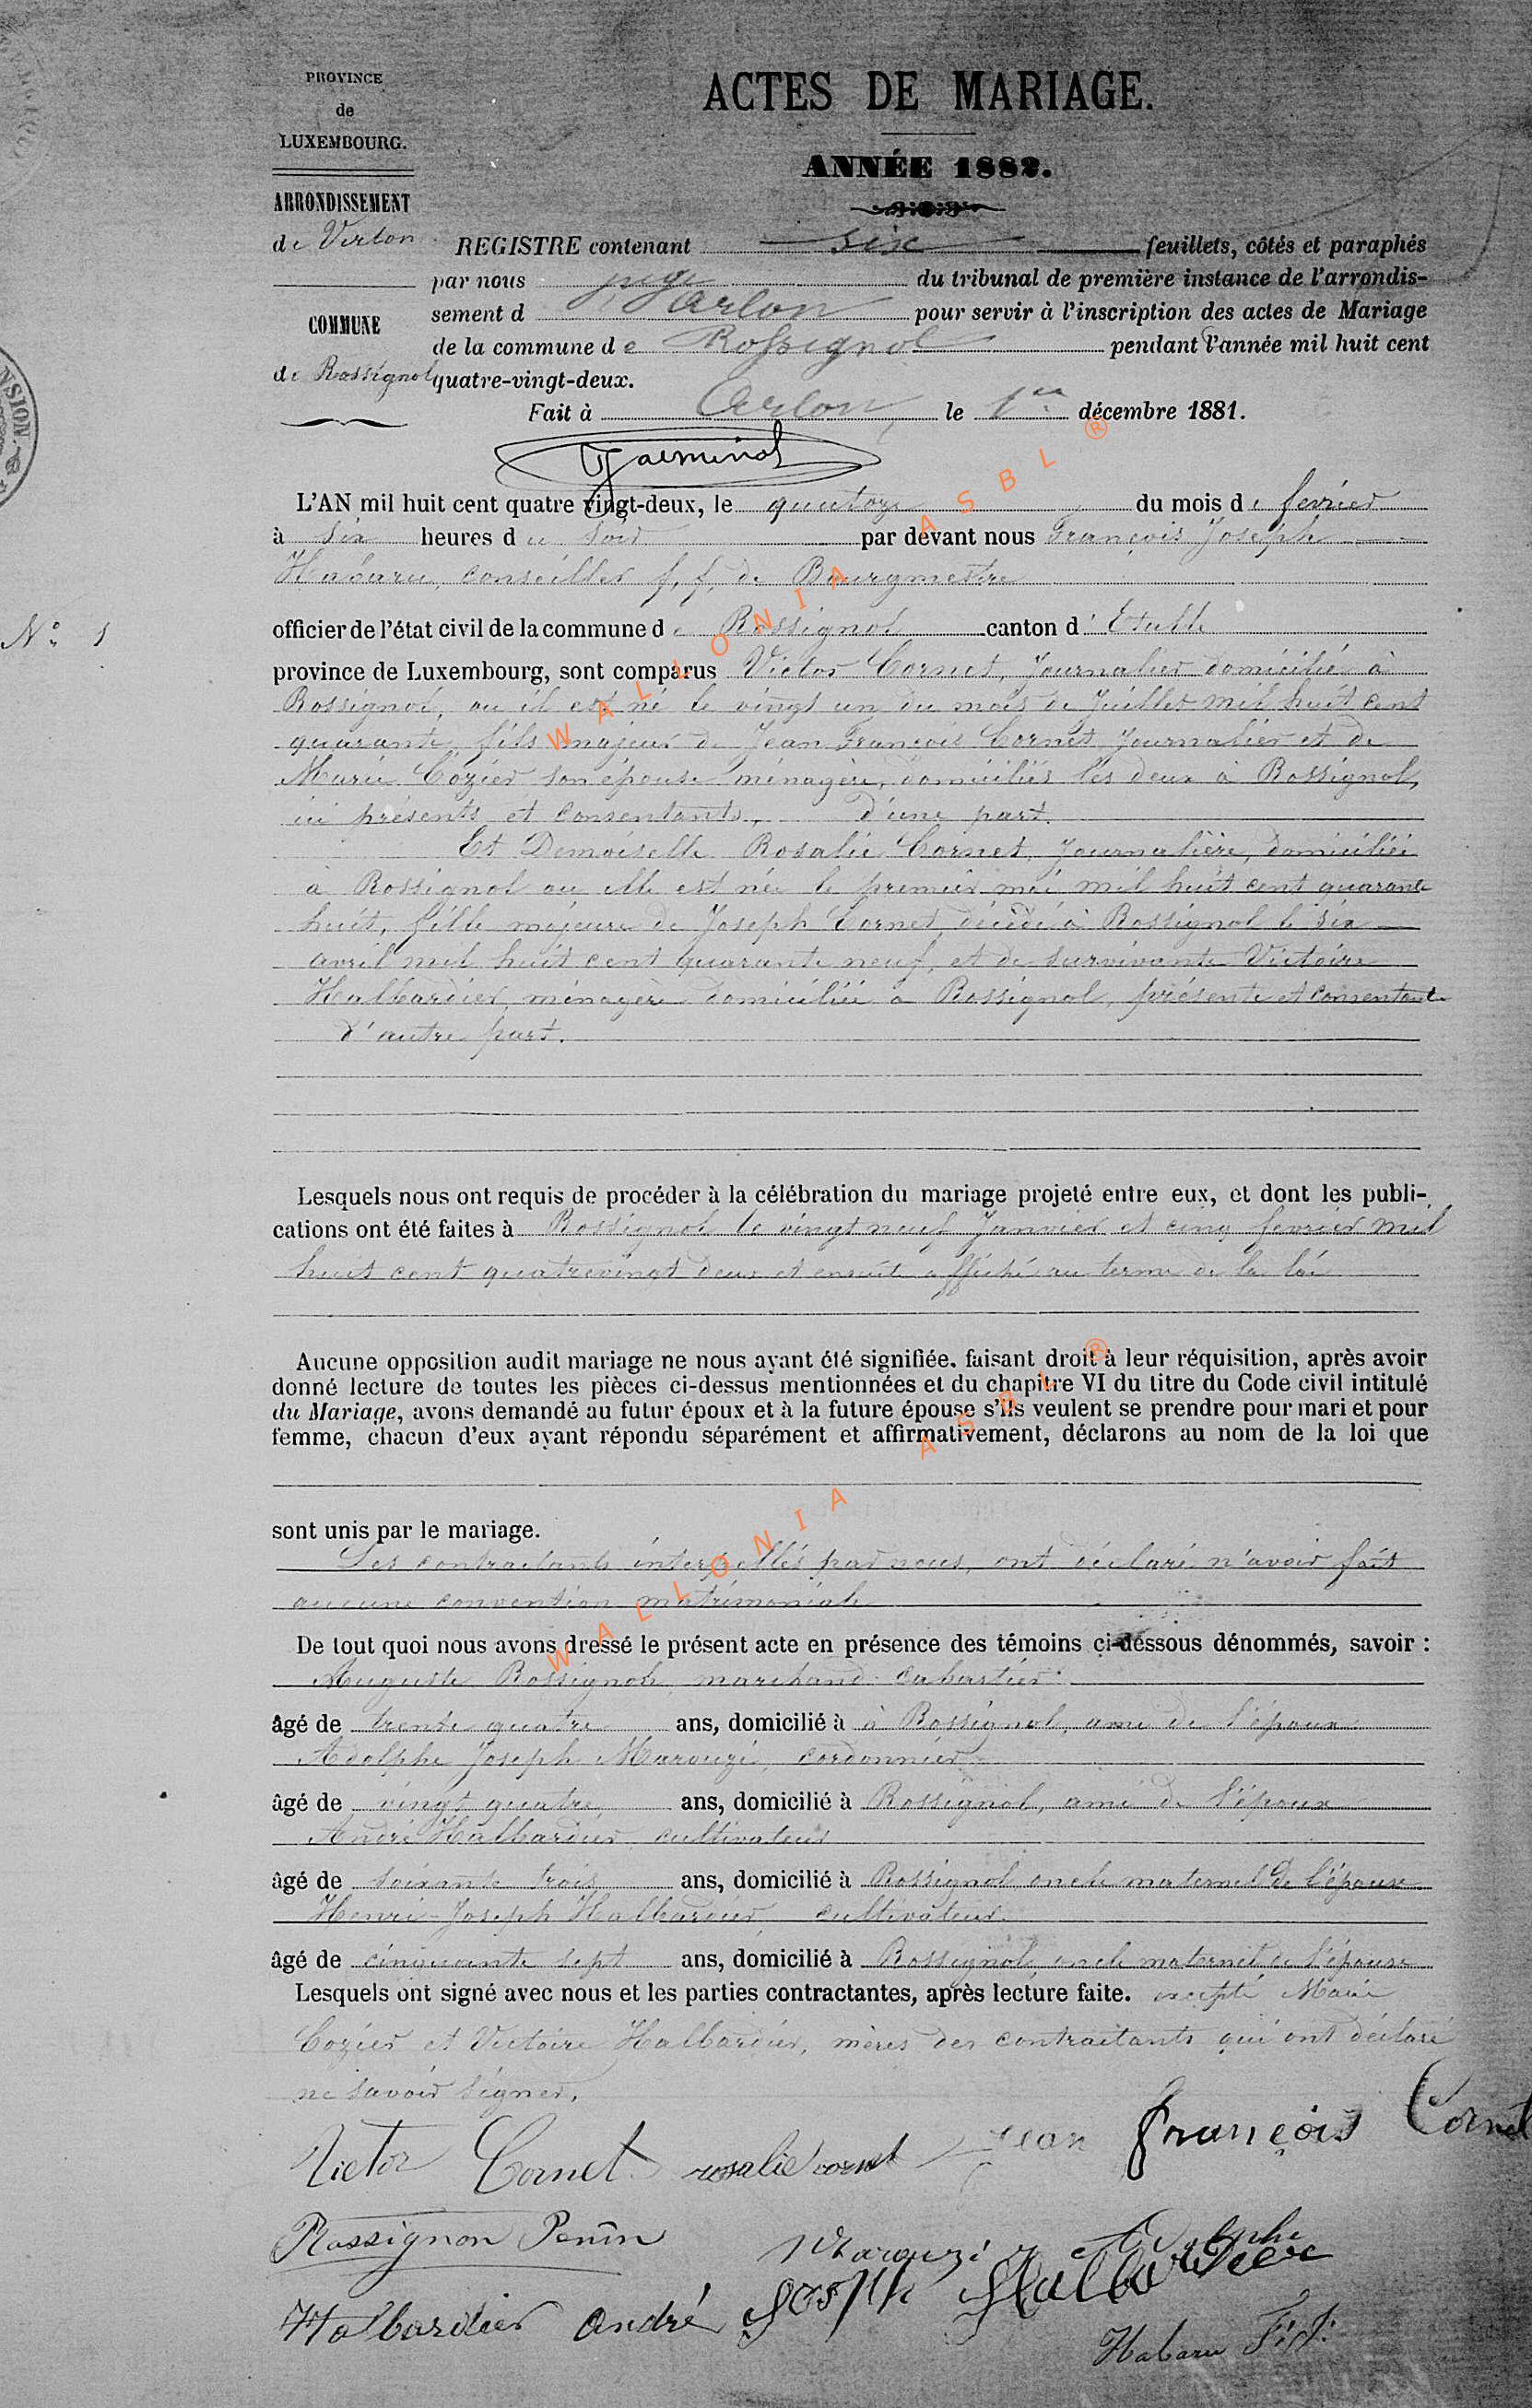 PROVINCE
de
LUXEMBOURG.
ARRONDISSEMENT
de Virton
COMMUNE
de Rossignol
ACTES DE MARIAGE.
ANNÉE 1882.
REGISTRE contenant six feuillets, côtés et paraphés
par nous juge du tribunal de première instance de l'arrondis-
sement d'Arlon pour servir à l'inscription des actes de Mariage
de la commune de Rossignol pendant l'année mil huit cent
quatre-vingt-deux.
Fait à Arlon le 1er décembre 1881.
L'AN mil huit cent quatre vingt-deux, le quatorze du mois de fevrier
à six heures du soir par devant nous François Joseph
Habaru, conseiller f. f. de Bourgmestre
N° 1
officier de l'état civil de la commune de Rossignol canton d'Etalle
province de Luxembourg, sont comparus Victor Cornet, Journalier domicilié à
Rossignol, ou il est né le vingt un du mois de Juillet mil huit cent
quarante, fils majeur de Jean François Cornet Journalier et de
Marie Cozier son épouse ménagère, domiciliés les deux à Rossignol,
ici présents et consentants, d'une part.
Et Demoiselle Rosalie Cornet, Journalière, domiciliée
à Rossignol ou elle est née le premier mai mil huit cent quarante
huit, fille majeure de Joseph Cornet, décédé à Rossignol le six
avril mil huit cent quarante neuf, et de survivante Victoire
Halbardier, ménagère domiciliée à Rossignol, présente et consentante
d'autre part.
Lesquels nous ont requis de procéder à la célébration du mariage projeté entre eux, et dont les publi-
cations ont été faites à Rossignol le vingt neuf Janvier et cinq fevrier mil
huit cent quatrevingt deux et ensuite affiché au terme de la loi
Aucune opposition audit mariage ne nous ayant été signifiée. faisant droit à leur réquisition, après avoir
donné lecture de toutes les pièces ci-dessus mentionnées et du chapitre VI du titre du Code civil intitulé
du Mariage, avons demandé au futur époux et à la future épouse s'ils veulent se prendre pour mari et pour
femme, chacun d'eux ayant répondu séparément et affirmativement, déclarons au nom de la loi que
sont unis par le mariage.
Les contractants interpellés par nous, ont déclaré n'avoir fait
aucune convention matrimoniale
De tout quoi nous avons dressé le présent acte en présence des témoins ci-dessous dénommés, savoir :
Auguste Rossignon, marchand cabartier
âgé de trente quatre ans, domicilié à à Rossignol, ami de l'époux
Adolphe Joseph Marouzé, cordonnier
âgé de vingt quatre, ans, domicilié à Rossignol, ami de l'époux
André Halbardier cultivateur
âgé de soixante trois ans, domicilié à Rossignol oncle maternel de l'épouse
Henri-Joseph Halbardier, cultivateur
âgé de cinquante sept ans, domicilié à Rossignol, oncle maternel de l'épouse
Lesquels ont signé avec nous et les parties contractantes, après lecture faite. excepté Marie
Cozier et Victoire Halbardier, mères des contractants qui ont déclaré
ne savoir signer.
Victor Cornet rosalie cornet Jean françois Cornet
Rossignon Penin Marouzé Adolphe
Halbardier André Joseph Halbardier
Habaru F. J.
WALLONIA ASBL ®
WALLONIA ASBL ®